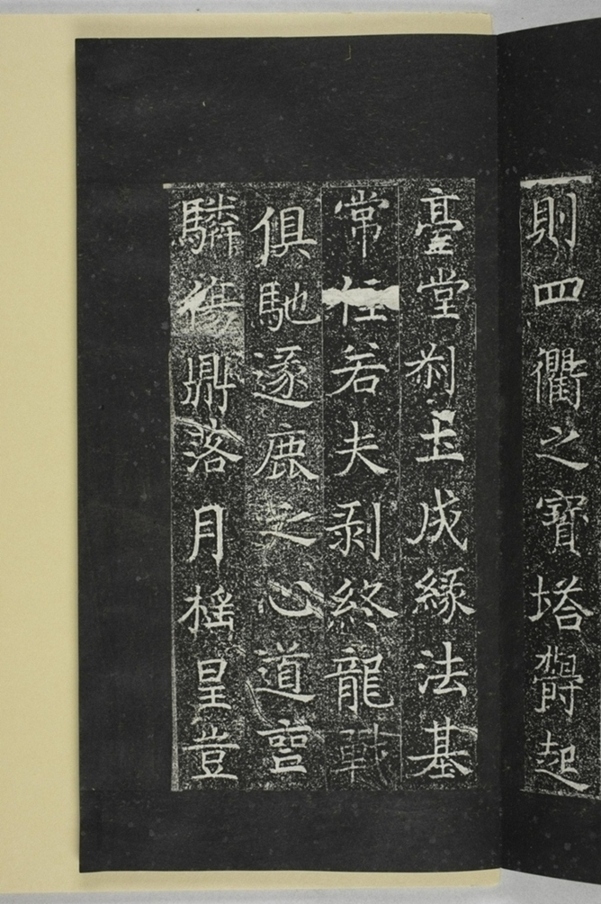 則四衢之寶塔欝起
臺堂刹土成緣法基
常住若夫剥終龍戰
俱馳逐鹿之心道
驎鼎落月榣星豈